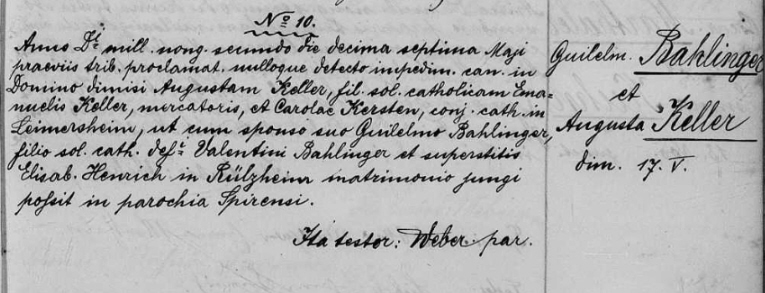 No 10.
Anno Di mill. nong. secundo die decima septima Maji
praeviis trib. proclamat. nulloque detecto impedim. can. in
Domino dimisi Augustam Keller, fil. sol. catholicam Ema-
nuelis Keller, mercatoris, et Carolae Kersten, conj. cath. in
Leimersheim, ut cum sponso suo Guilelmo Bahlinger,
filio sol. cath. defti Valentini Bahlinger et superstitis
Elisab. Henrich in Rülzheim matrimonio jungi
possit in parochia Spirensi.
Ita testor: Weber par.
Guilelm. Bahlinger
et
Augusta Keller
dim. 17. V.